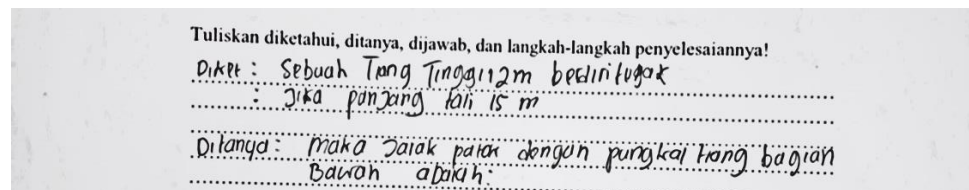 Tuliskan diketahui, ditanya, dijawab, dan langkah-langkah penyelesaiannya!
Diket : Sebuah Tiang Tinggi 12m berdiri tegak
: Jika panjang tali 15 m
Ditanya : maka Jarak patok dengan pangkal tiang bagian
Bawah adalah: